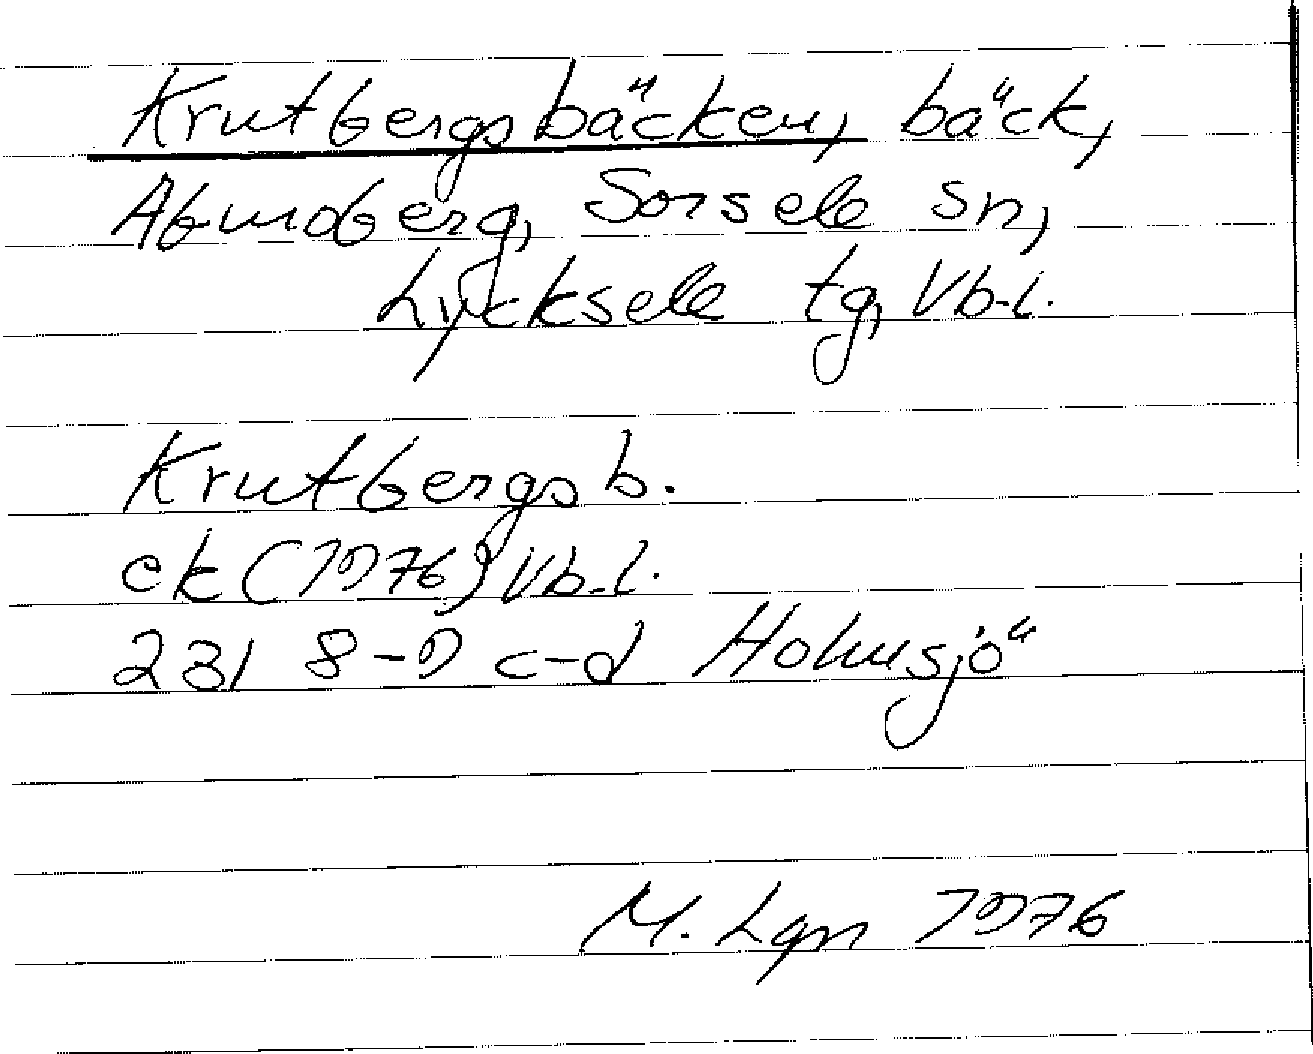 Krutbergsbäcken, bäck,
Abmoberg, Sorsele sn,
Lycksele tg, Vb-l.
Krutbergsb.
ek (1976) Vb-l.
23I 8-9 c-d Holmsjö
M. Lgn 1976